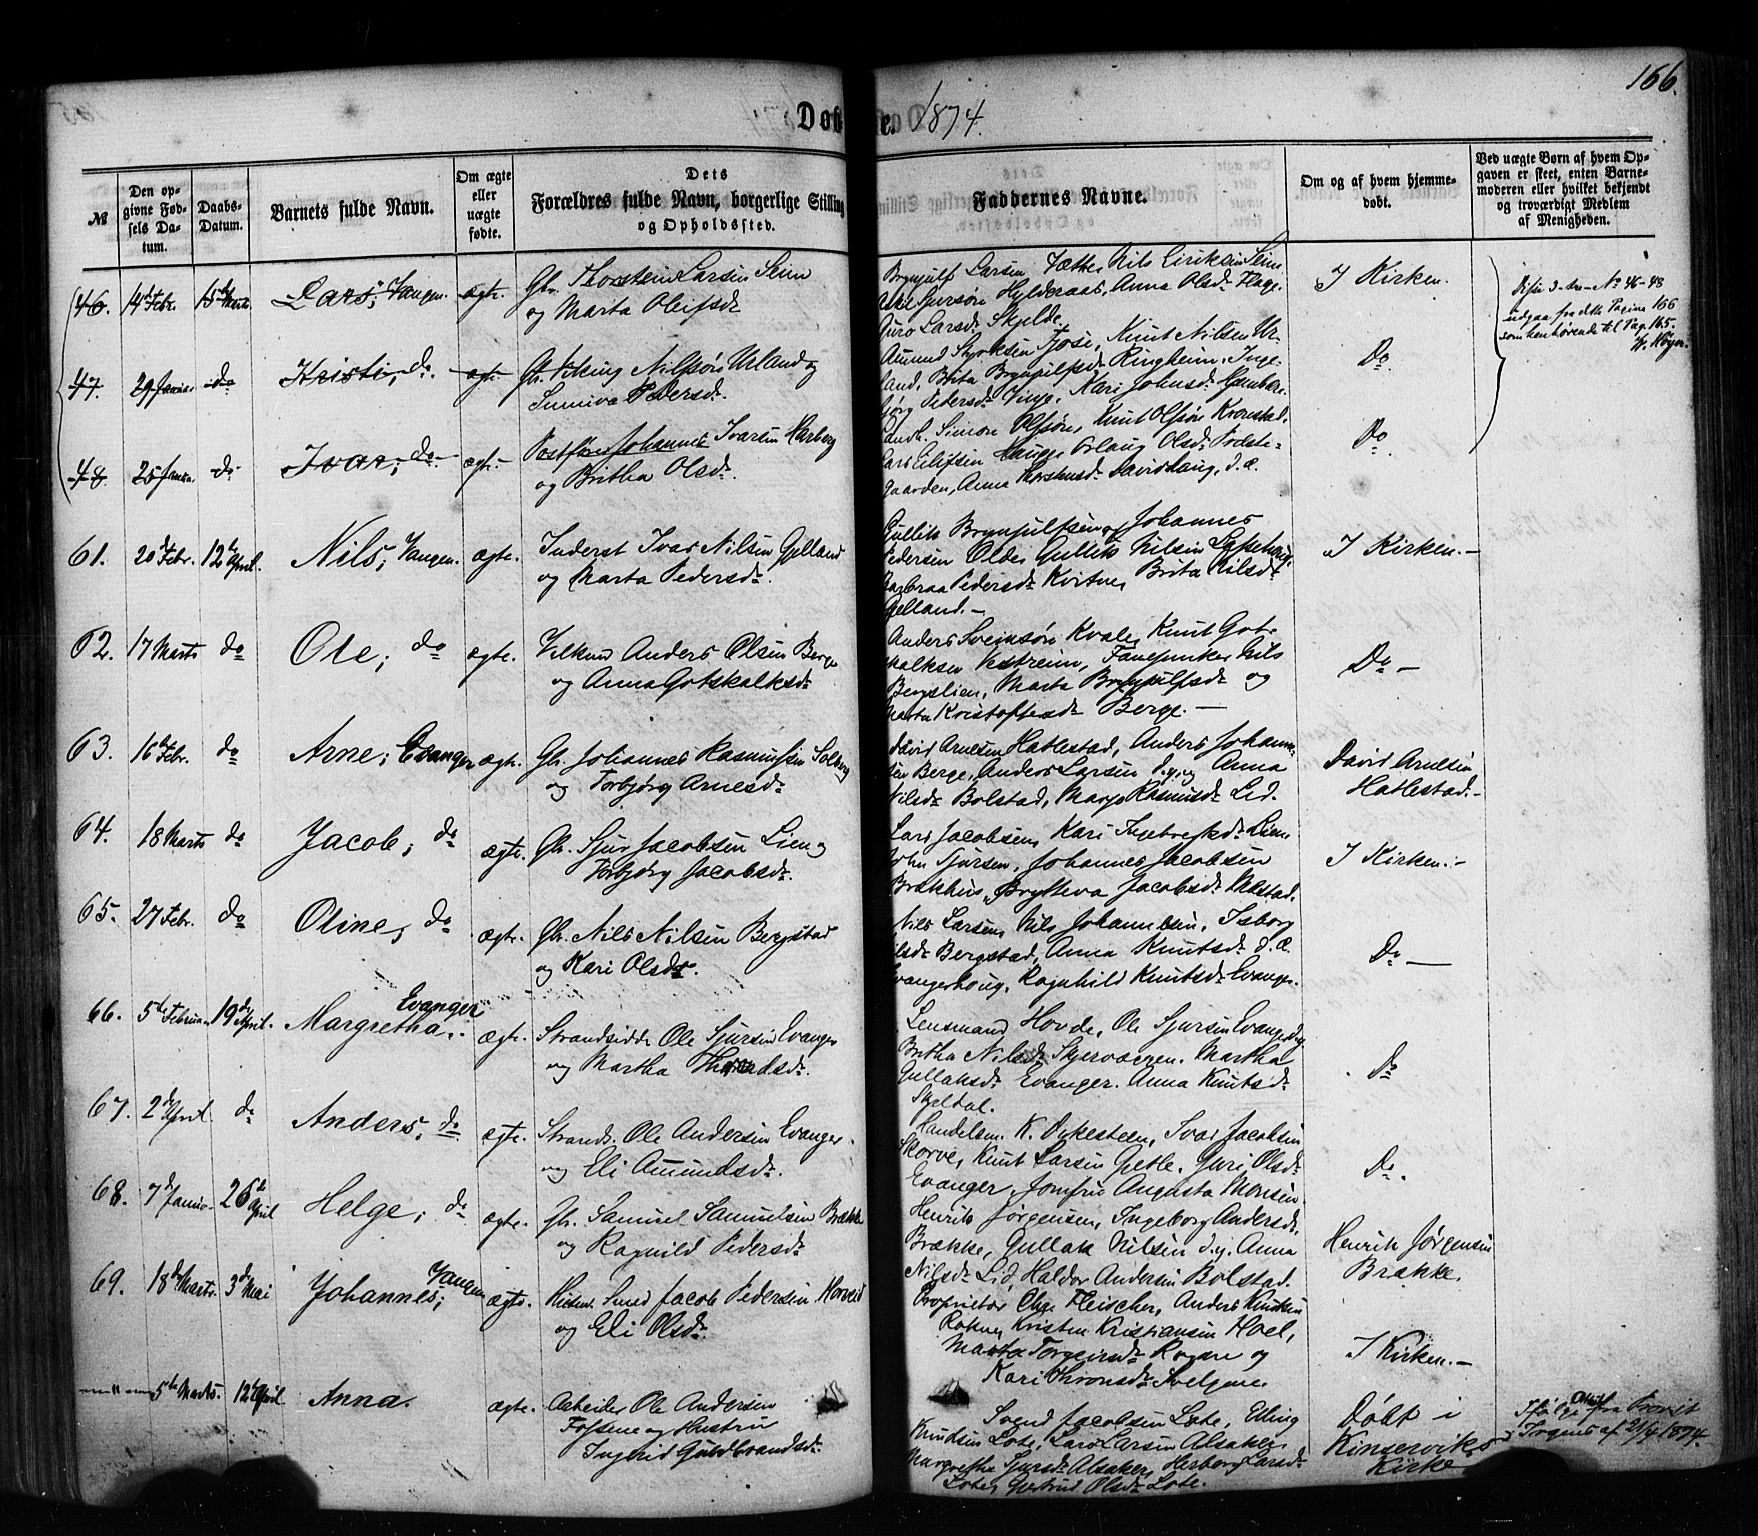 166.
Døbte. 1874.
№
Den opgivne Fødsels Datum.
Daabs-Datum.
Barnets fulde Navn.
Om ægte eller uægte fødte.
Dets Forældres fulde Navn, borgerlige Stilling og Opholdssted.
Faddernes Navne.
Om og af hvem hjemmedøbt.
Ved uægte Børn af hvem Opgaven er skeet, enten Barnemoderen eller hvilket bekjendt og troværdigt Medlem af Menigheden.
46. 14de Febr. 15de Marts Lars; Vangen. ægte. Gbr. Thorstein Larsen Seim
og Marta Oleifsdr
Brynjulf Larsen Tætte, Nils Eiriksen Seim
Sjursøn Hylderaas, Anna Olsdr Flage.
Guro Larsdr Skjelde
I Kirken.
Disse 3 No 46-48
udgaa fra dette Pagina 166
som henhørende til Pag. 165.
47. 29 Januar do Kristi, do. ægt. Gbr. Viking Nilsøn Urland og
Sunniva Pedersdr.
Amund Styrksen Gjøse, Knut Nilsen Ur-
land, Brita Brynjulfsdr Ringheim, Inge-
bjørg Pedersdr Vinje, Kari Johnsdr
Do
48. 25 Januar. do Ivar; do ægt. Johannes Ivarsen Herberg
og Britha Olsdr.
Simon Olsøn, Knut Olsøn Kronstad,
Lars Eilifsen Hauge, Olaug Olsdr Præste-
gaarden, Anna Davidhaug, d. æ.
Do
61. 20de Febr. 12te April. Nils; Vangen. ægte. Inderst Ivar Nilsen Gjelland
og Marta Pedersdr.
Gullik Brynjulfsen og Johannes
Pedersen Olde, Gullik Nilsen
Barbraa Pedersdr Kvitne, Brita Nilsdr
Gjelland.-
I Kirken.-
62. 17 Marts do Ole; do ægte. Anders Olsen Berge
og Anna Gotskalksdr
Anders Sveinsøn Kvale, Knut Got-
skalksen Vestreim, Fanejunker Nils
Bergslien, Marta Brynjulfsdr og
Marta Kristoffersdr Berge.-
Do-
63. 16de Febr. do Arne; Evanger ægte. Gbr. Johannes Rasmussen Solberg
og Torbjørg Arnesdr
David Arnesen Hatlestad, Anders Johanne-
sen Berge, Anders Larsen d. y. og Anna
Nilsdr Bolstad, Marjo Rasmusdr Lid.
David Arnesen
Hatlestad.-
64. 18 Marts do Jacob; do ægte. Gbr. Sjur Jacobsen Lien og
Torbjørg Jacobsdr.
Lars Jacobsen, Kari Ingebregtsdr Lien
John Sjursen, Johannes Jacobsen
Brækhus, Brytteva Jacobsdr
I Kirken.-
65. 27 Febr. do Oline, do ægte. Gbr. Nils Nilsen Bergstad
og Kari Olsdr.
Nils Larsen, Nils Johannesen, Isborg
Nilsdr Bergstad, Anna Knutsdr d. æ.
Evangerhoug, Ragnhild Knutsdr Evanger.
Do-
66. 5te Februar 19de April. Margretha; Evanger ægte. Strandsidder Ole Sjursen Evanger
og Martha
Lensmand Hovde, Ole Sjursen Evanger d. y.
Britha Nilsdr Skjervæggen. Martha
Gullaksdr Evanger. Anna Knutsdr
Skjeldal.
Do
67. 2den April. do Anders; do. ægte. Strands. Ole Andersen Evanger
og Eli Amundsdr.
Handelsm. K. Dykesteen, Ivar Jacobsen
Skorve, Knut Larsen Gjetle. Guri Olsdr
Evanger, Jomfru Augusta Monsen.
Do.
68. 7de Januar 26de April Helge; do ægte. Gbr. Samuel Samuelsen Brække
og Ragnild Pedersdr
Henrik Jørgensen, Ingeborg Andersdr
Brække, Gullak Nilsen d. y. Anna
Nilsdr Lid, Haldor Andersen Bolstad.
Henrik Jørgensen
Brække.
69. 18de Marts. 3de Mai Johannes; Vangen ægte. Husm. Smed Jacob Pedersen Horveid
og Eli Olsdr
Proprietør Fleischer, Anders Knutsen
Rokne, Kristen Kristiansen Hoel,
Marta Torgeirsdr Rogne og
Kari
I Kirken.-
" 5te Marts. 12te April Anna. ægte. Arbeider Ole Andersen
og Hustru
Ingrid Guldbrandsdr.
Svend Jacobsen Lote, Elling
Knudsen Lote, Lars Larsen Alsaker,
Margrethe Sjursdr Alsaker, Herborg Larsdr
Lote, Gjertrud Olsdr Lote.
Døbt i
Kinserviks
Kirke
Ifølge Attest fra Provst
Irgens af 21/4 1874.